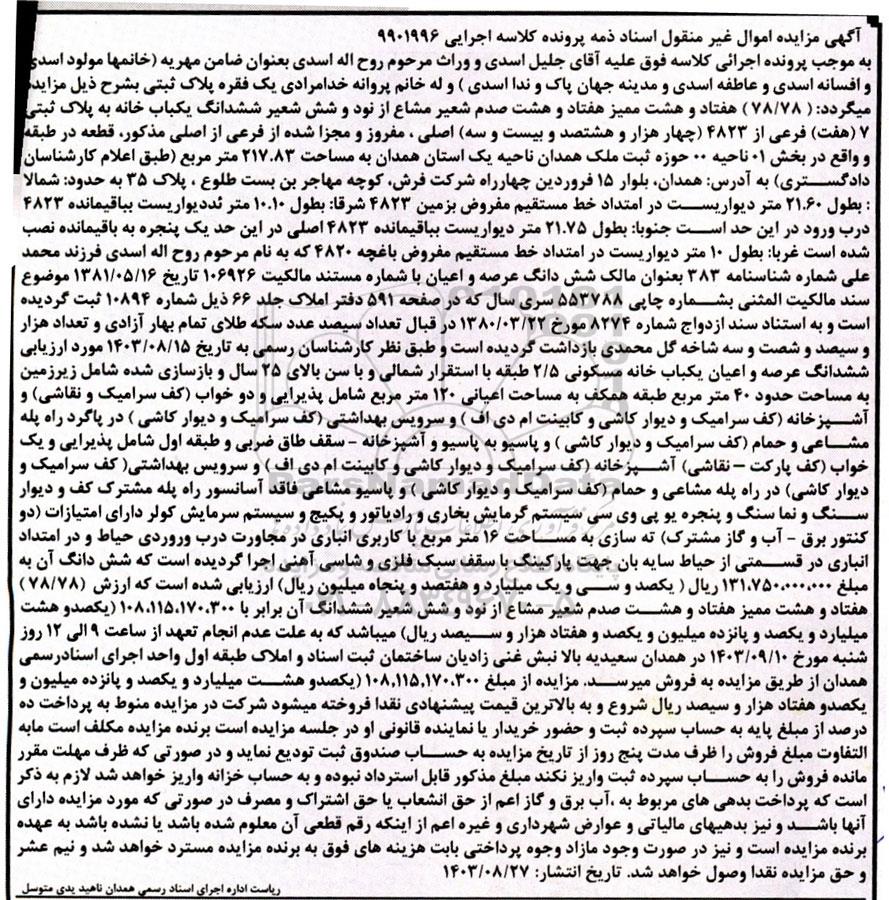 آگهی مزایده اموال غیر منقول اسناد ذمه پرونده کلاسه اجرایی ۹۹۰۱۹۹۶
به موجب پرونده اجرائی کلاسه فوق علیه آقای جلیل اسدی و وراث مرحوم روح اله اسدی بعنوان ضامن مهریه (خانمها مولود اسدی
و افسانه اسدی و عاطفه اسدی و مدینه جهان پاک و ندا اسدی ) و له خانم پروانه خدامرادی یک فقره پلاک ثبتی بشرح ذیل مزایده
میگردد: ( ۷۸/۷۸ ) هفتاد و هشت ممیز هفتاد و هشت صدم شعیر مشاع از نود و شش شعیر ششدانگ یکباب خانه به پلاک ثبتی
۷ (هفت) فرعی از ۴۸۲۳ (چهار هزار و هشتصد و بیست و سه) اصلی ، مفروز و مجزا شده از فرعی از اصلی مذکور، قطعه در طبقه
و واقع در بخش ۰۱ ناحیه ۰۰ حوزه ثبت ملک همدان ناحیه یک استان همدان به مساحت ۲۱۷.۸۳ متر مربع (طبق اعلام کارشناسان
دادگستری) به آدرس: همدان، بلوار ۱۵ فروردین چهارراه شرکت فرش، کوچه مهاجر بن بست طلوع ، پلاک ۳۵ به حدود: شمالا
: بطول ۲۱.۶۰ متر دیواریست در امتداد خط مستقیم مفروض بزمین ۴۸۲۳ شرقا: بطول ۱۰.۱۰ متر ئددیواریست بباقیمانده ۴۸۲۳
درب ورود در این حد است جنوبا: بطول ۲۱.۷۵ متر دیواریست بباقیمانده ۴۸۲۳ اصلی در این حد یک پنجره به باقیمانده نصب
شده است غربا: بطول ۱۰ متر دیواریست در امتداد خط مستقیم مفروض باغچه ۴۸۲۰ که به نام مرحوم روح اله اسدی فرزند محمد
علی شماره شناسنامه ۳۸۳ بعنوان مالک شش دانگ عرصه و اعیان با شماره مستند مالکیت ۱۰۶۹۲۶ تاریخ ۱۳۸۱/۰۵/۱۶ موضوع
سند مالکیت المثنی بشماره چاپی ۵۵۳۷۸۸ سری سال که در صفحه ۵۹۱ دفتر املاک جلد ۶۶ ذیل شماره ۱۰۸۹۴ ثبت گردیده
است و به استناد سند ازدواج شماره ۸۲۷۴ مورخ ۱۳۸۰/۰۳/۲۲ در قبال تعداد سیصد عدد سکه طلای تمام بهار آزادی و تعداد هزار
و سیصد و شصت و سه شاخه گل محمدی بازداشت گردیده است و طبق نظر کارشناسان رسمی به تاریخ ۱۴۰۳/۰۸/۱۵ مورد ارزیابی
ششدانگ عرصه و اعیان یکباب خانه مسکونی ۲/۵ طبقه با استقرار شمالی و با سن بالای ۲۵ سال و بازسازی شده شامل زیرزمین
به مساحت حدود ۴۰ متر مربع طبقه همکف به مساحت اعیانی ۱۲۰ متر مربع شامل پذیرایی و دو خواب (کف سرامیک و نقاشی) و
آشپزخانه (کف سرامیک و دیوار کاشی و کابینت ام دی اف ) و سرویس بهداشتی (کف سرامیک و دیوار کاشی ) در پاگرد راه پله
مشاعی و حمام (کف سرامیک و دیوار کاشی ) و پاسیو به پاسیو و آشپزخانه - سقف طاق ضربی و طبقه اول شامل پذیرایی و یک
خواب (کف پارکت – نقاشی) آشپزخانه (کف سرامیک و دیوار کاشی و کابینت ام دی اف ) و سرویس بهداشتی( کف سرامیک و
دیوار کاشی) در راه پله مشاعی و حمام (کف سرامیک و دیوار کاشی ) و پاسیو مشاعی فاقد آسانسور راه پله مشترک کف و دیوار
سنگ و نما سنگ و پنجره یو پی وی سی سیستم گرمایش بخاری و رادیاتور و پکیج و سیستم سرمایش کولر دارای امتیازات (دو
کنتور برق - آب و گاز مشترک) ته سازی به مساحت ۱۶ متر مربع با کاربری انباری در مجاورت درب وروردی حیاط و در امتداد
انباری در قسمتی از حیاط سایه بان جهت پارکینگ با سقف سبک فلزی و شاسی آهنی اجرا گردیده است که شش دانگ آن به
مبلغ ۱۳۱.۷۵۰.۰۰۰.۰۰۰ ریال ( یکصد و سی و یک میلیارد و هفتصد و پنجاه میلیون ریال) ارزیابی شده است که ارزش (۷۸/۷۸ )
هفتاد و هشت ممیز هفتاد و هشت صدم شعیر مشاع از نود و شش شعیر ششدانگ آن برابر با ۱۰۸.۱۱۵.۱۷۰.۳۰۰ (یکصدو هشت
میلیارد و یکصد و پانزده میلیون و یکصد و هفتاد هزار و سیصد ریال) میباشد که به علت عدم انجام تعهد از ساعت ۹ الی ۱۲ روز
شنبه مورخ ۱۴۰۳/۰۹/۱۰ در همدان سعیدیه بالا نبش غنی زادیان ساختمان ثبت اسناد و املاک طبقه اول واحد اجرای اسنادرسمی
همدان از طریق مزایده به فروش میرسد. مزایده از مبلغ ۱۰۸,۱۱۵,۱۷۰.۳۰۰ (یکصدو هشت میلیارد و یکصد و پانزده میلیون و
یکصدو هفتاد هزار و سیصد ریال شروع و به بالاترین قیمت پیشنهادی نقدا فروخته میشود شرکت در مزایده منوط به پرداخت ده
درصد از مبلغ پایه به حساب سپرده ثبت و حضور خریدار یا نماینده قانونی او در جلسه مزایده است برنده مزایده مکلف است مابه
التفاوت مبلغ فروش را ظرف مدت پنج روز از تاریخ مزایده به حساب صندوق ثبت تودیع نماید و در صورتی که ظرف مهلت مقرر
مانده فروش را به حساب سپرده ثبت واریز نکند مبلغ مذکور قابل استرداد نبوده و به حساب خزانه واریز خواهد شد لازم به ذکر
است که پرداخت بدهی های مربوط به ،آب برق و گاز اعم از حق انشعاب یا حق اشتراک و مصرف در صورتی که مورد مزایده دارای
آنها باشد و نیز بدهیهای مالیاتی و عوارض شهرداری و غیره اعم از اینکه رقم قطعی آن معلوم شده باشد یا نشده باشد به عهده
برنده مزایده است و نیز در صورت وجود مازاد وجوه پرداختی بابت هزینه های فوق به برنده مزایده مسترد خواهد شد و نیم عشر
و حق مزایده نقدا وصول خواهد شد. تاریخ انتشار: ۱۴۰۳/۰۸/۲۷
ریاست اداره اجرای اسناد رسمی همدان ناهید یدی متوسل
ParsNamadData